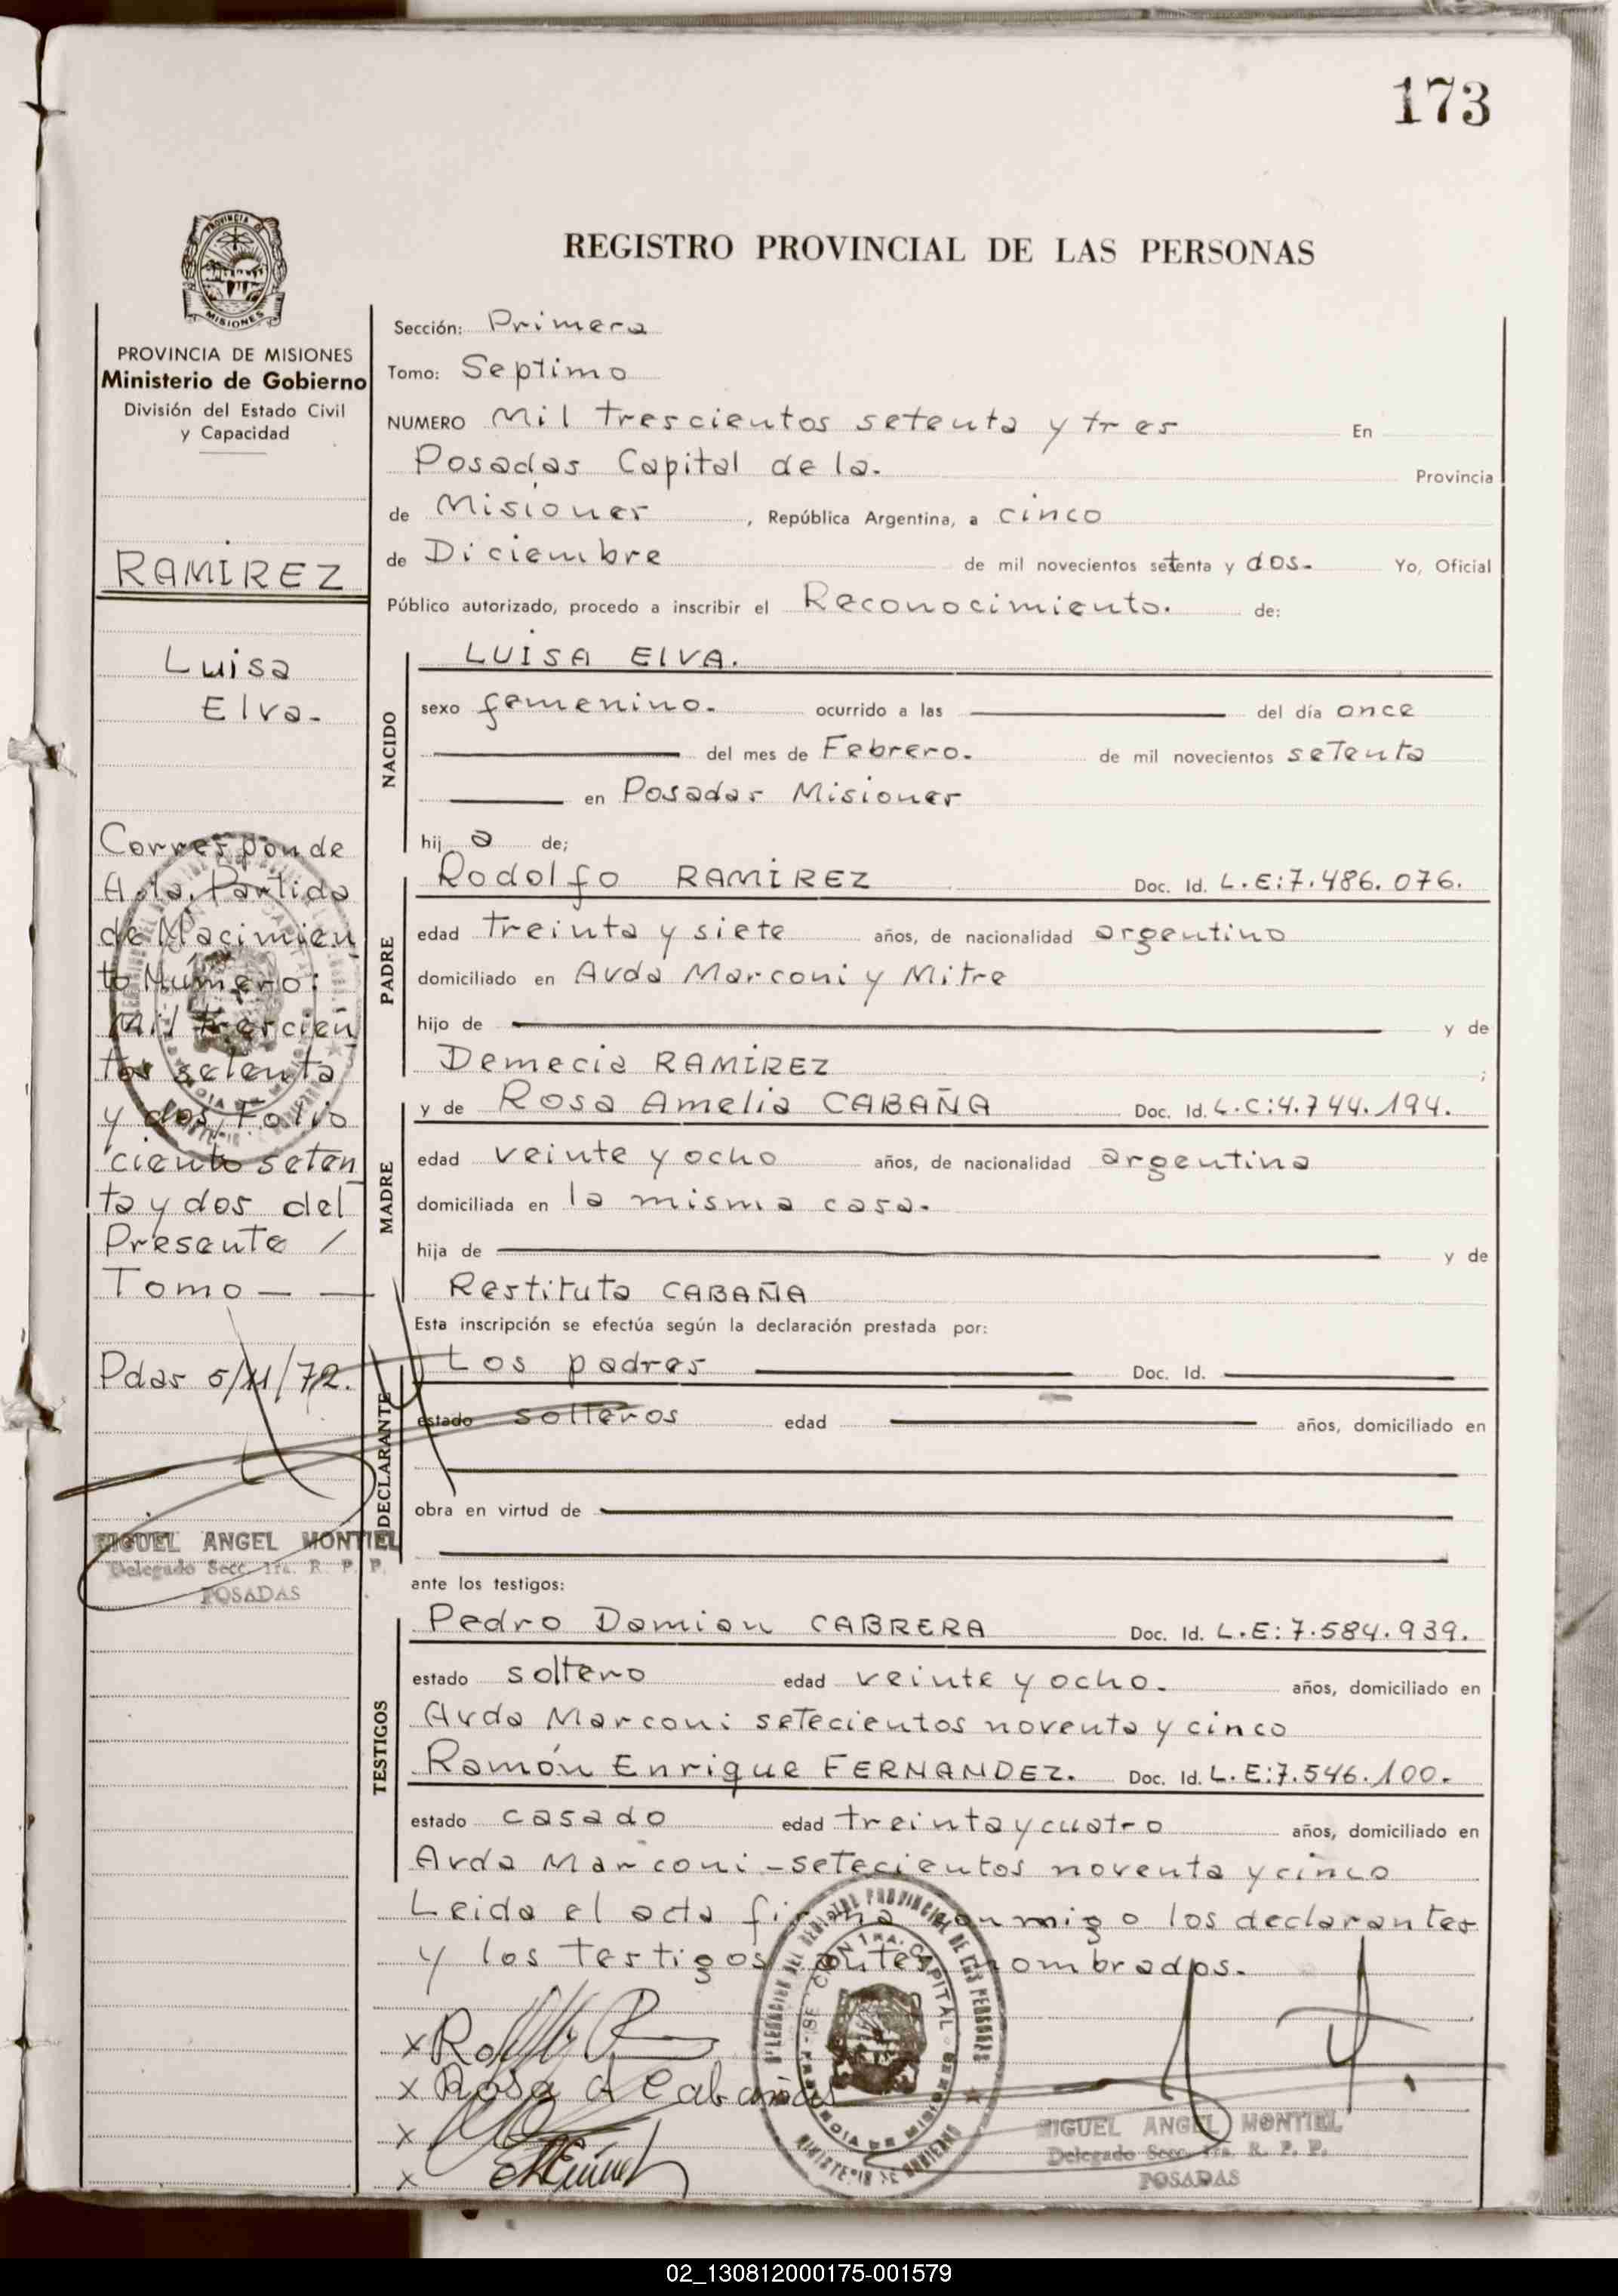 173
PROVINCIA DE MISIONES
Ministerio de Gobierno
División del Estado Civil
y Capacidad
RAMIREZ
Luisa
Elva-
Corresponde
A la Partida
de Nacimien
to Número:
Mil trescien
tos setenta
y dos, Folio
ciento seten
ta y dos del
Presente /
Tomo — —
Pdas 5/11/72.
MIGUEL ANGEL MONTIEL
Delegado Secc. 1ra. R. P. P.
POSADAS
REGISTRO PROVINCIAL DE LAS PERSONAS
Sección: Primera
Tomo: Septimo
NUMERO Mil trescientos setenta y tres En
Posadas Capital de la. Provincia
de Misiones, República Argentina, a cinco
de Diciembre de mil novecientos setenta y dos. Yo, Oficial
Público autorizado, procedo a inscribir el Reconocimiento. de:
NACIDO
LUISA ElVA.
sexo femenino. ocurrido a las ——— del día once
——— del mes de Febrero. de mil novecientos setenta
——— en Posadas Misiones
hij a de;
PADRE
Rodolfo RAMIREZ Doc. Id. L.E:7.486.076.
edad treinta y siete años, de nacionalidad argentino
domiciliado en Avda Marconi y Mitre
hijo de ——— y de
Demecia RAMIREZ ;
MADRE
y de Rosa Amelia CABAÑA Doc. Id. L.C:4.744.194.
edad veinte y ocho años, de nacionalidad argentina
domiciliada en la misma casa.
hija de ——— y de
Restituta CABAÑA
Esta inscripción se efectúa según la declaración prestada por:
DECLARANTE
Los padres ——— Doc. Id. ———
estado solteros edad ——— años, domiciliado en
obra en virtud de ———
ante los testigos:
TESTIGOS
Pedro Damian CABRERA Doc. Id. L.E:7.584.939.
estado soltero edad veinte y ocho. años, domiciliado en
Avda Marconi setecientos noventa y cinco
Ramón Enrique FERNANDEZ. Doc. Id. L.E:7.546.100.
estado casado edad treinta y cuatro años, domiciliado en
Avda Marconi - setecientos noventa y cinco
Leida el acta firma conmigo los declarantes
y los testigos antes nombrados.
x
x Rosa A Cabañas
x
x
MIGUEL ANGEL MONTIEL
Delegado Secc. 1ra. R. P. P.
POSADAS
02_130812000175-001579